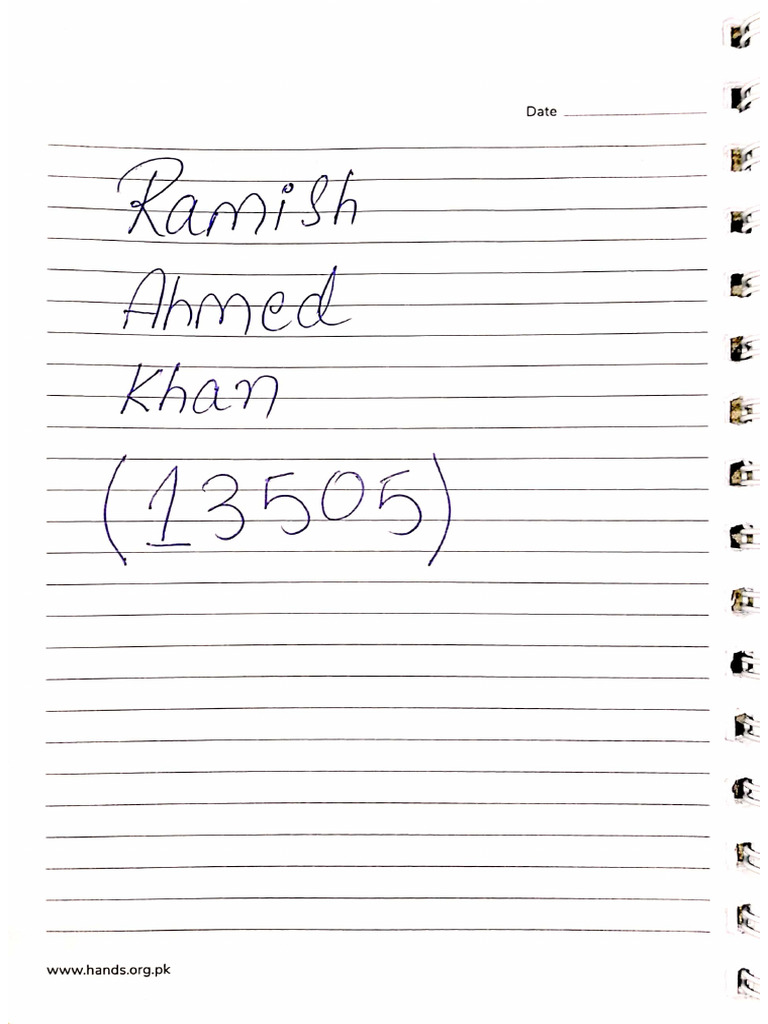 Date
Ramish
Ahmed
Khan
(13505)
www.hands.org.pk